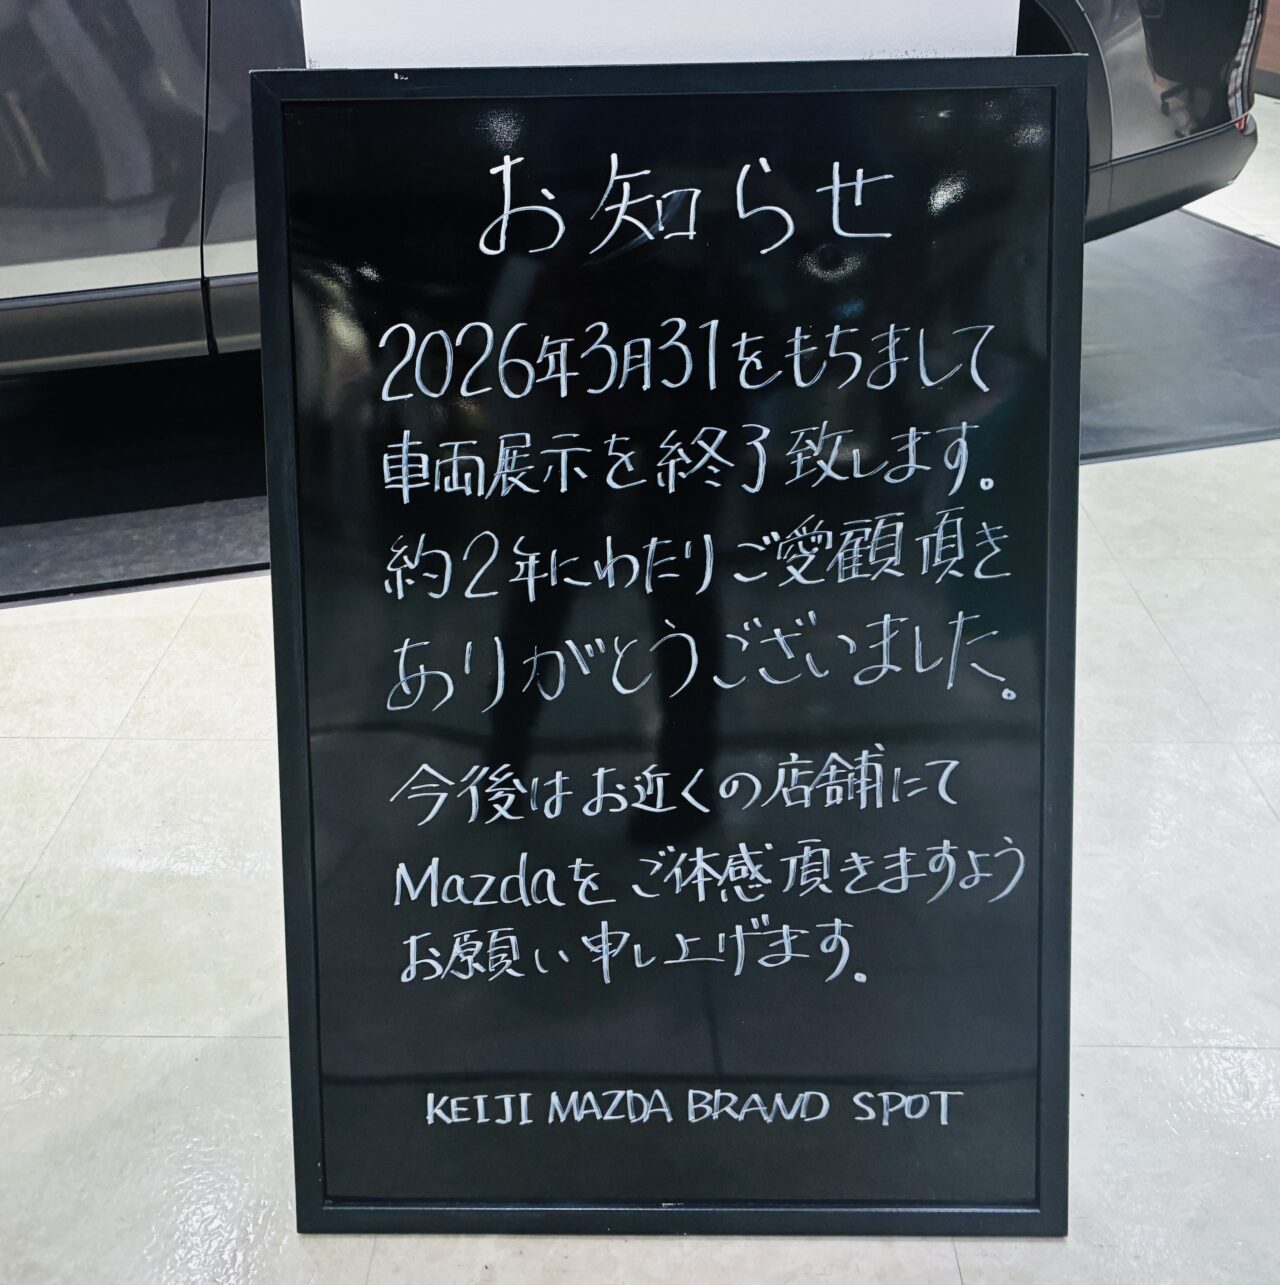 お知らせ
2026年3月31をもちまして
車両展示を終了致します。
約2年にわたりご愛顧頂き
ありがとうございました。
今後はお近くの店舗にて
Mazdaをご体感頂きますよう
お願い申し上げます。
KEIJI MAZDA BRAND SPOT